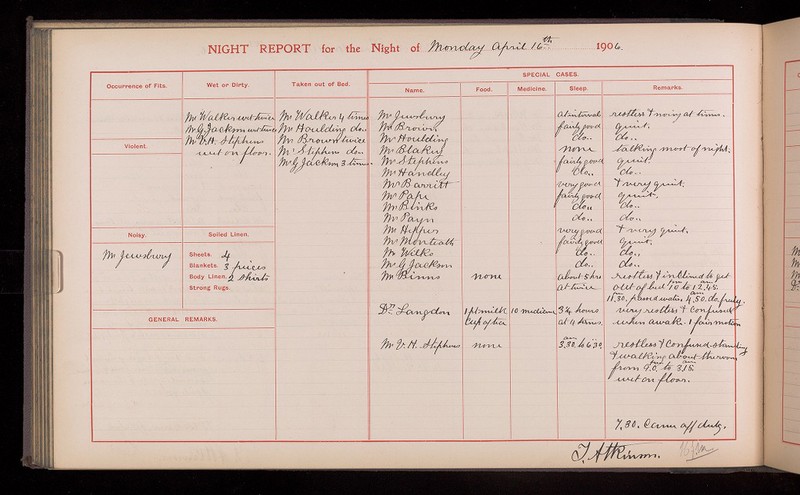 NIGHT REPORT for the Night of Monday April 16th 1906.
SPECIAL CASES.
Occurrence of Fits. Wet or Dirty. Taken out of Bed. Name. Food. Medicine. Sleep. Remarks.
Mr Walker wet twice Mr Walker 4 times Mr Jewsbury at interval restless & noisy at times.
Mr G Jackson wet twice Mr Houlding do.. Mr Brown fairly good quiet.
Mr V.H. Stephens Mr Brown twice Mr Houlding do.. do..
Violent. wet on floor. Mr Stephens do.. Mr Blakey none talking most of night.
Mr G Jackson 3 times Mr Stephens fairly good quiet
Mr Handley do.. do..
Mr Barritt very good & very quiet.
Mr Pape fairly good quiet.
Mr Binks do.. do..
Mr Payn do.. do..
Noisy. Soiled Linen. Mr Hippes very good & very quiet.
Mr Monteath fairly good quiet.
Mr Jewsbury Sheets. 4 Mr Wilks do.. do..
Blankets. 3 pieces Mr G Jackson do.. do..
Body Linen. 2 shirts Mr Binns none about 5 hrs restless & inclined to get
Strong Rugs. at twice out of bed 10 to 12.45
Dr Langdon 1 pt milk 10 medicine 3¾ hours very restless & confused
GENERAL REMARKS. Cup of tea at 4 times. when awake. 1 fair motion
Mr V. H. Stephens none 3.30 to 6.30 restless & confused standing
& walking about the room
from 9.0. to 3.15
wet on floor.
7.30. Came off duty.
T. Atkinson.